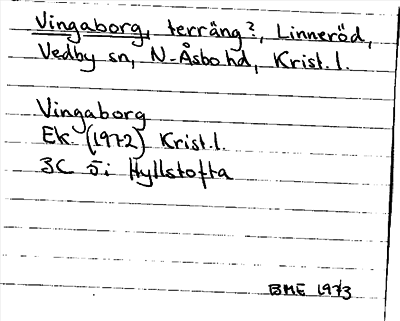 Vingaborg, terräng?, Linneröd,
Vedby sn, N-Åsbo hd, Krist.l.
Vingaborg
Ek (1972) Krist.l.
3C 5i Hyllstofta
BME 1973